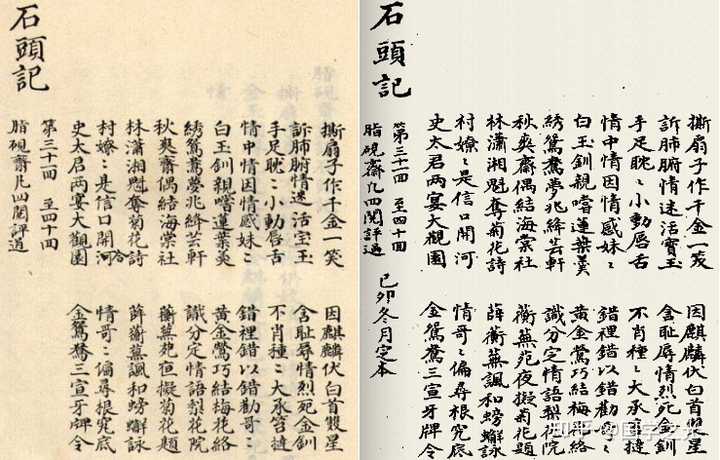 石頭記
撕扇子作千金一笑 因麒麟伏白首雙星
訴肺腑情迷活宝玉 含耻辱情烈死金釧
手足眈〻小動唇舌 不肖種〻大承笞撻
情中情因情感妹〻 錯裡錯以錯勸哥〻
白玉釧親嚐蓮葉羹 黃金鶯巧結梅花絡
綉鴛鴦夢兆絳芸軒 識分定情語梨花院
秋爽齋偶結海棠社 蘅蕪苑宿擬菊花題
林瀟湘魁奪菊花詩 薛蘅蕪諷和螃蠏詠
村嫽〻是信口開河 情哥〻偏尋根究底
史太君两宴大觀園 金鴛鴦三宣牙牌令
第三十一回 至四十回
脂硯齋凡四閱評過
石頭記
撕扇子作千金一笑 因麒麟伏白首雙星
訴肺腑情迷活寶玉 含耻辱情烈死金釧
手足眈〻小動唇舌 不肖種〻大承笞撻
情中情因情感妹〻 錯裡錯以錯勸哥〻
白玉釧親嚐蓮葉羹 黃金鶯巧結梅花絡
綉鴛鴦夢兆絳芸軒 識分定情語梨花院
秋爽齋偶結海棠社 蘅蕪苑夜擬菊花題
林瀟湘魁奪菊花詩 薛蘅蕪諷和螃蠏詠
村嫽〻是信口開河 情哥〻偏尋根究底
史太君两宴大觀園 金鴛鴦三宣牙牌令
第三十一回 至四十回
脂硯齋凡四閱評過 己卯冬月定本
知乎